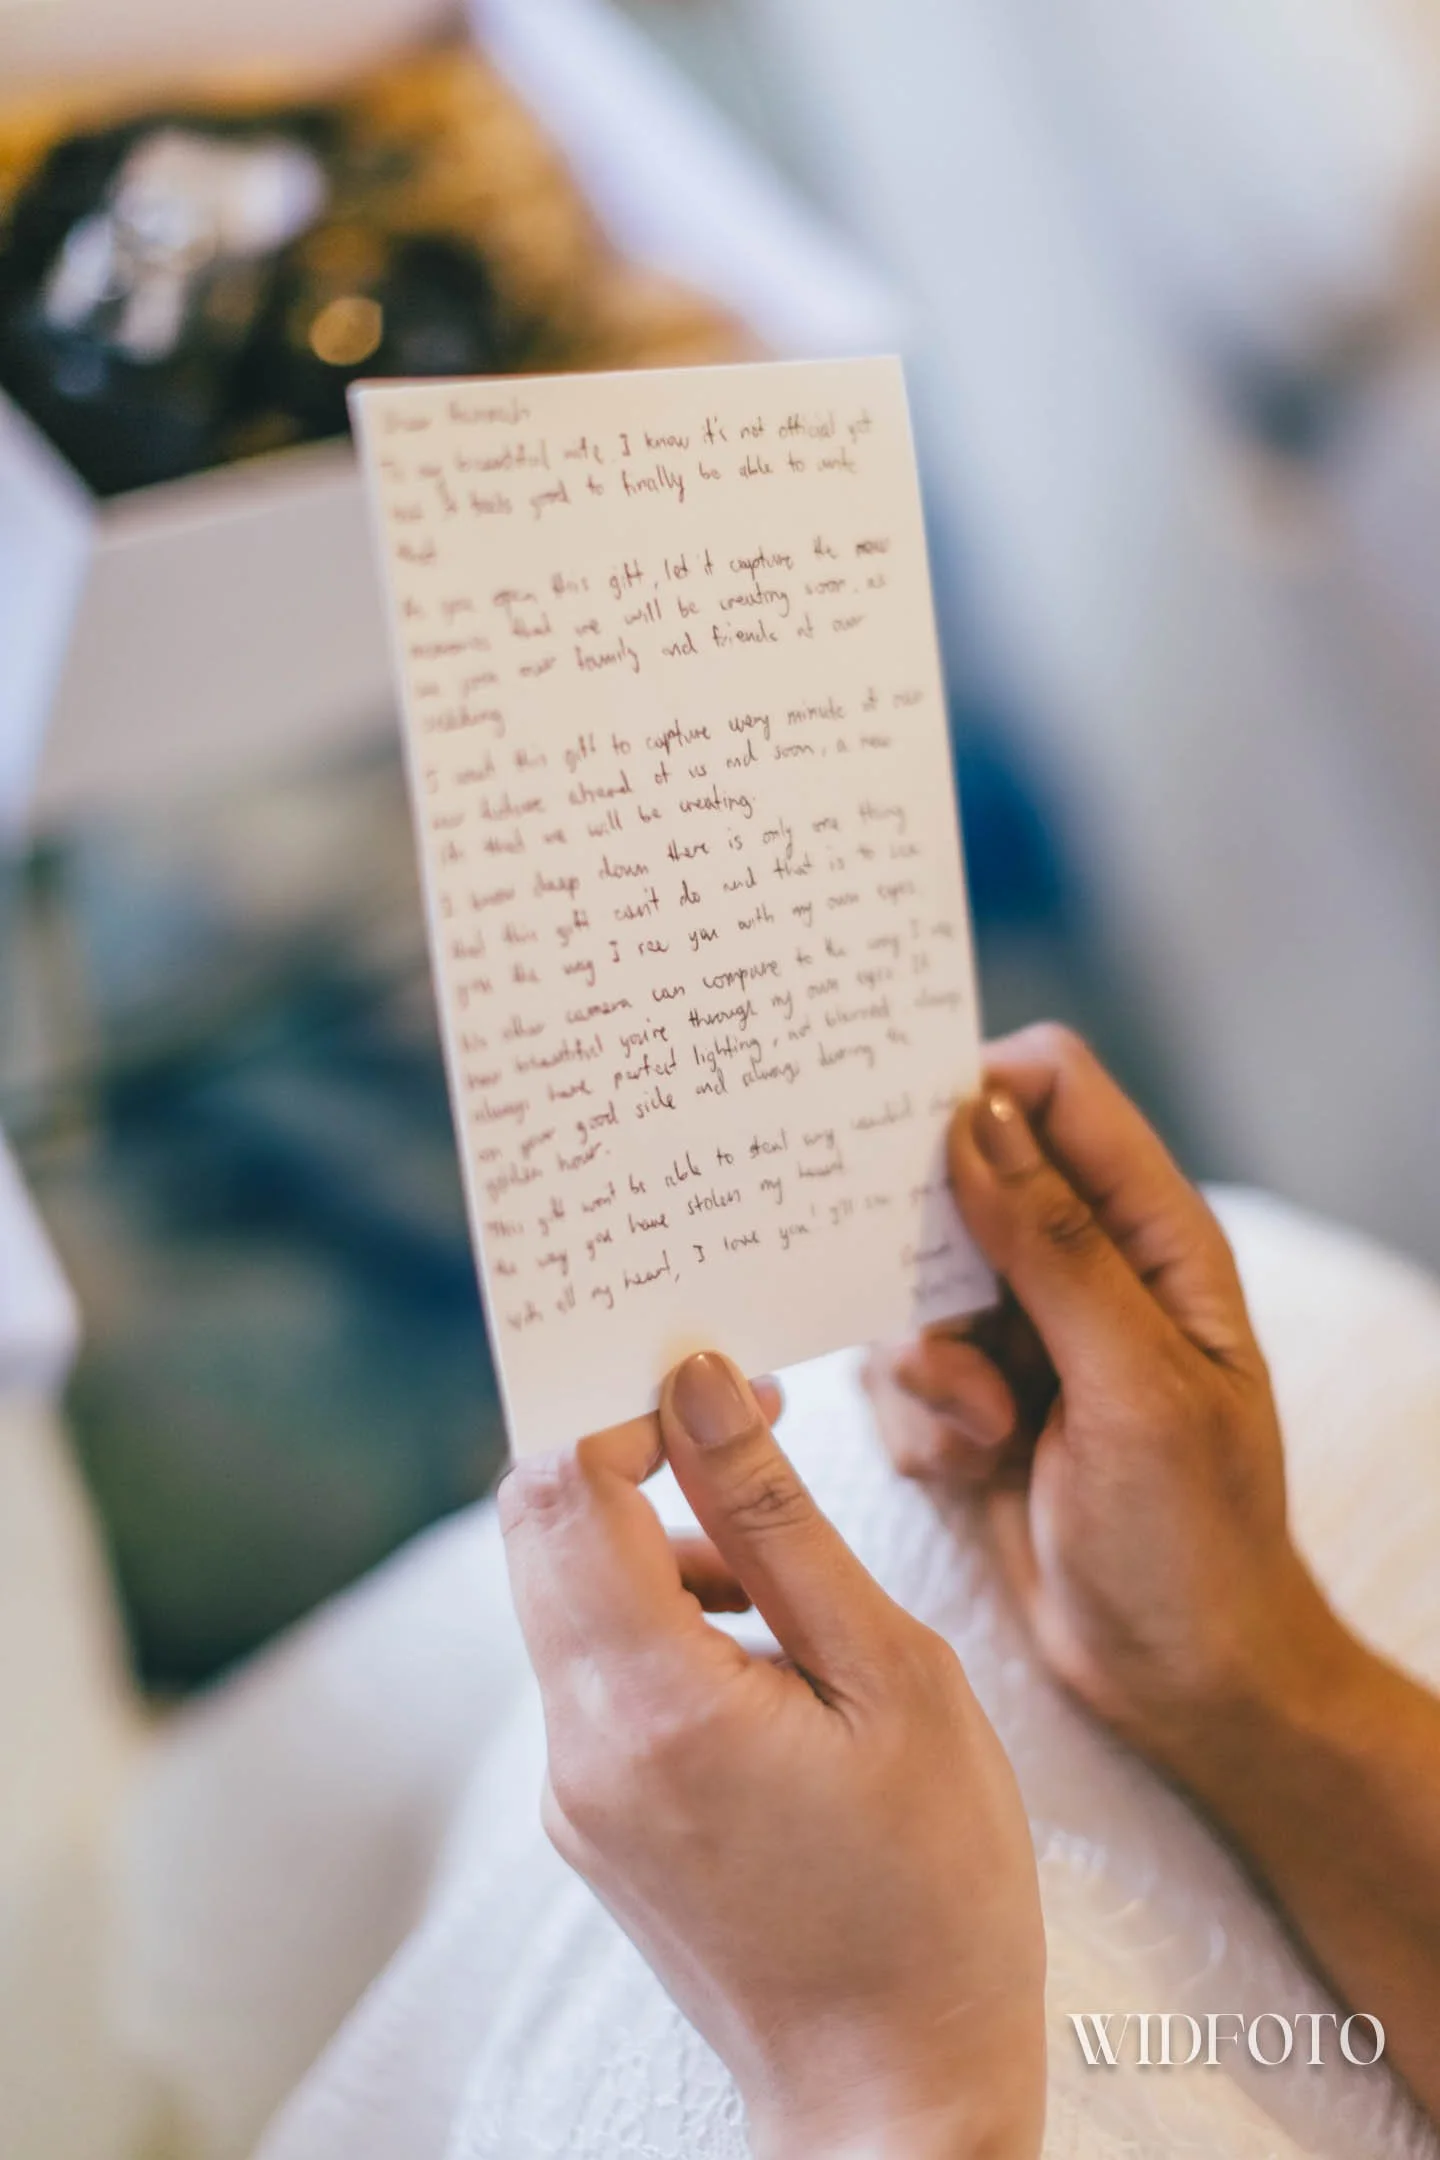 Dear Hannah
To my beautiful wife, I know it's not official yet
but it feels good to finally be able to write
that
As you open this gift, let it capture the new
memories that we will be creating soon, as
we join our family and friends at our
wedding
I want this gift to capture every minute of our
our future ahead of us and soon, a new
life that we will be creating.
I know deep down there is only one thing
that this gift can't do and that is to see
you the way I see you with my own eyes.
No other camera can compare to the way I see
how beautiful you're through my own eyes. It
always have perfect lighting, not blurred, always
on your good side and always during the
golden hour.
This gift won't be able to steal any
the way you have stolen my heart
with all my heart, I love you! I'll see you
WIDFOTO